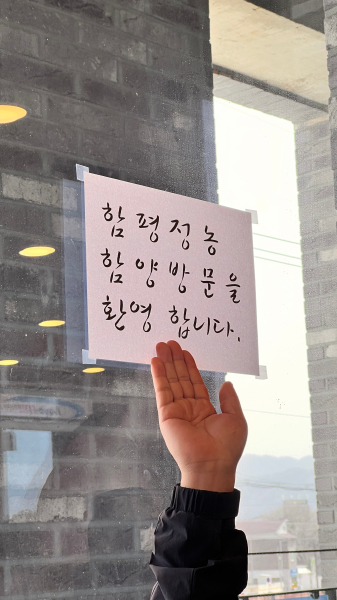 함평정농
함양방문을
환영 합니다.